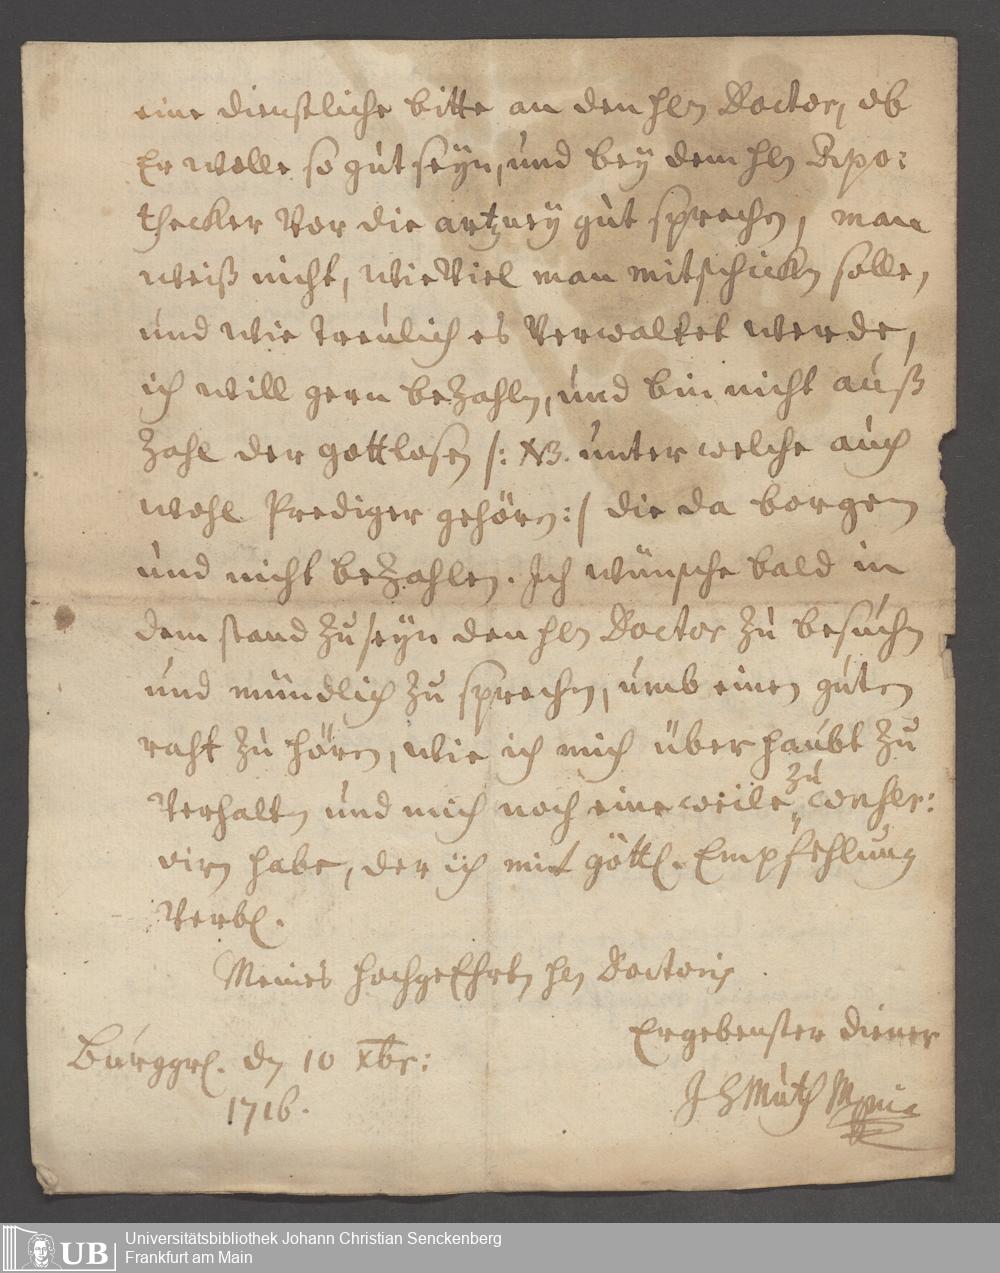 eine dienstliche bitte an den hln Doctor, ob
Er wolle so gut seyn, und bey dem hln Apo:
thecker vor die artzney gut sprechn, man
weiß nicht, wieviel man mitschickn solle,
und wie treulich es verwaltet werde,
ich will gern bezahln, und bin nicht auß
Zahl der gottlosen /: NB. unter welche auch
wohl Prediger gehörn :/ die da borgen
und nicht bezahlen. Ich wünsche bald in
dem stand zu seyn den hln Doctor zu besuchn
und mündlich zu sprechn, umb einen guten
raht zu hören, wie ich mich überhaubt zu
verhaltn und mich noch eine weile zu
habe, der ich mit göttl. Empfehlung
verbl.
Meines hochgeEhrtn hln Doctoris
Ergebenster diener
Burggrl. dn 10 Xbr:
1716.
JH Muth
Universitätsbibliothek Johann Christian Senckenberg
Frankfurt am Main
UB